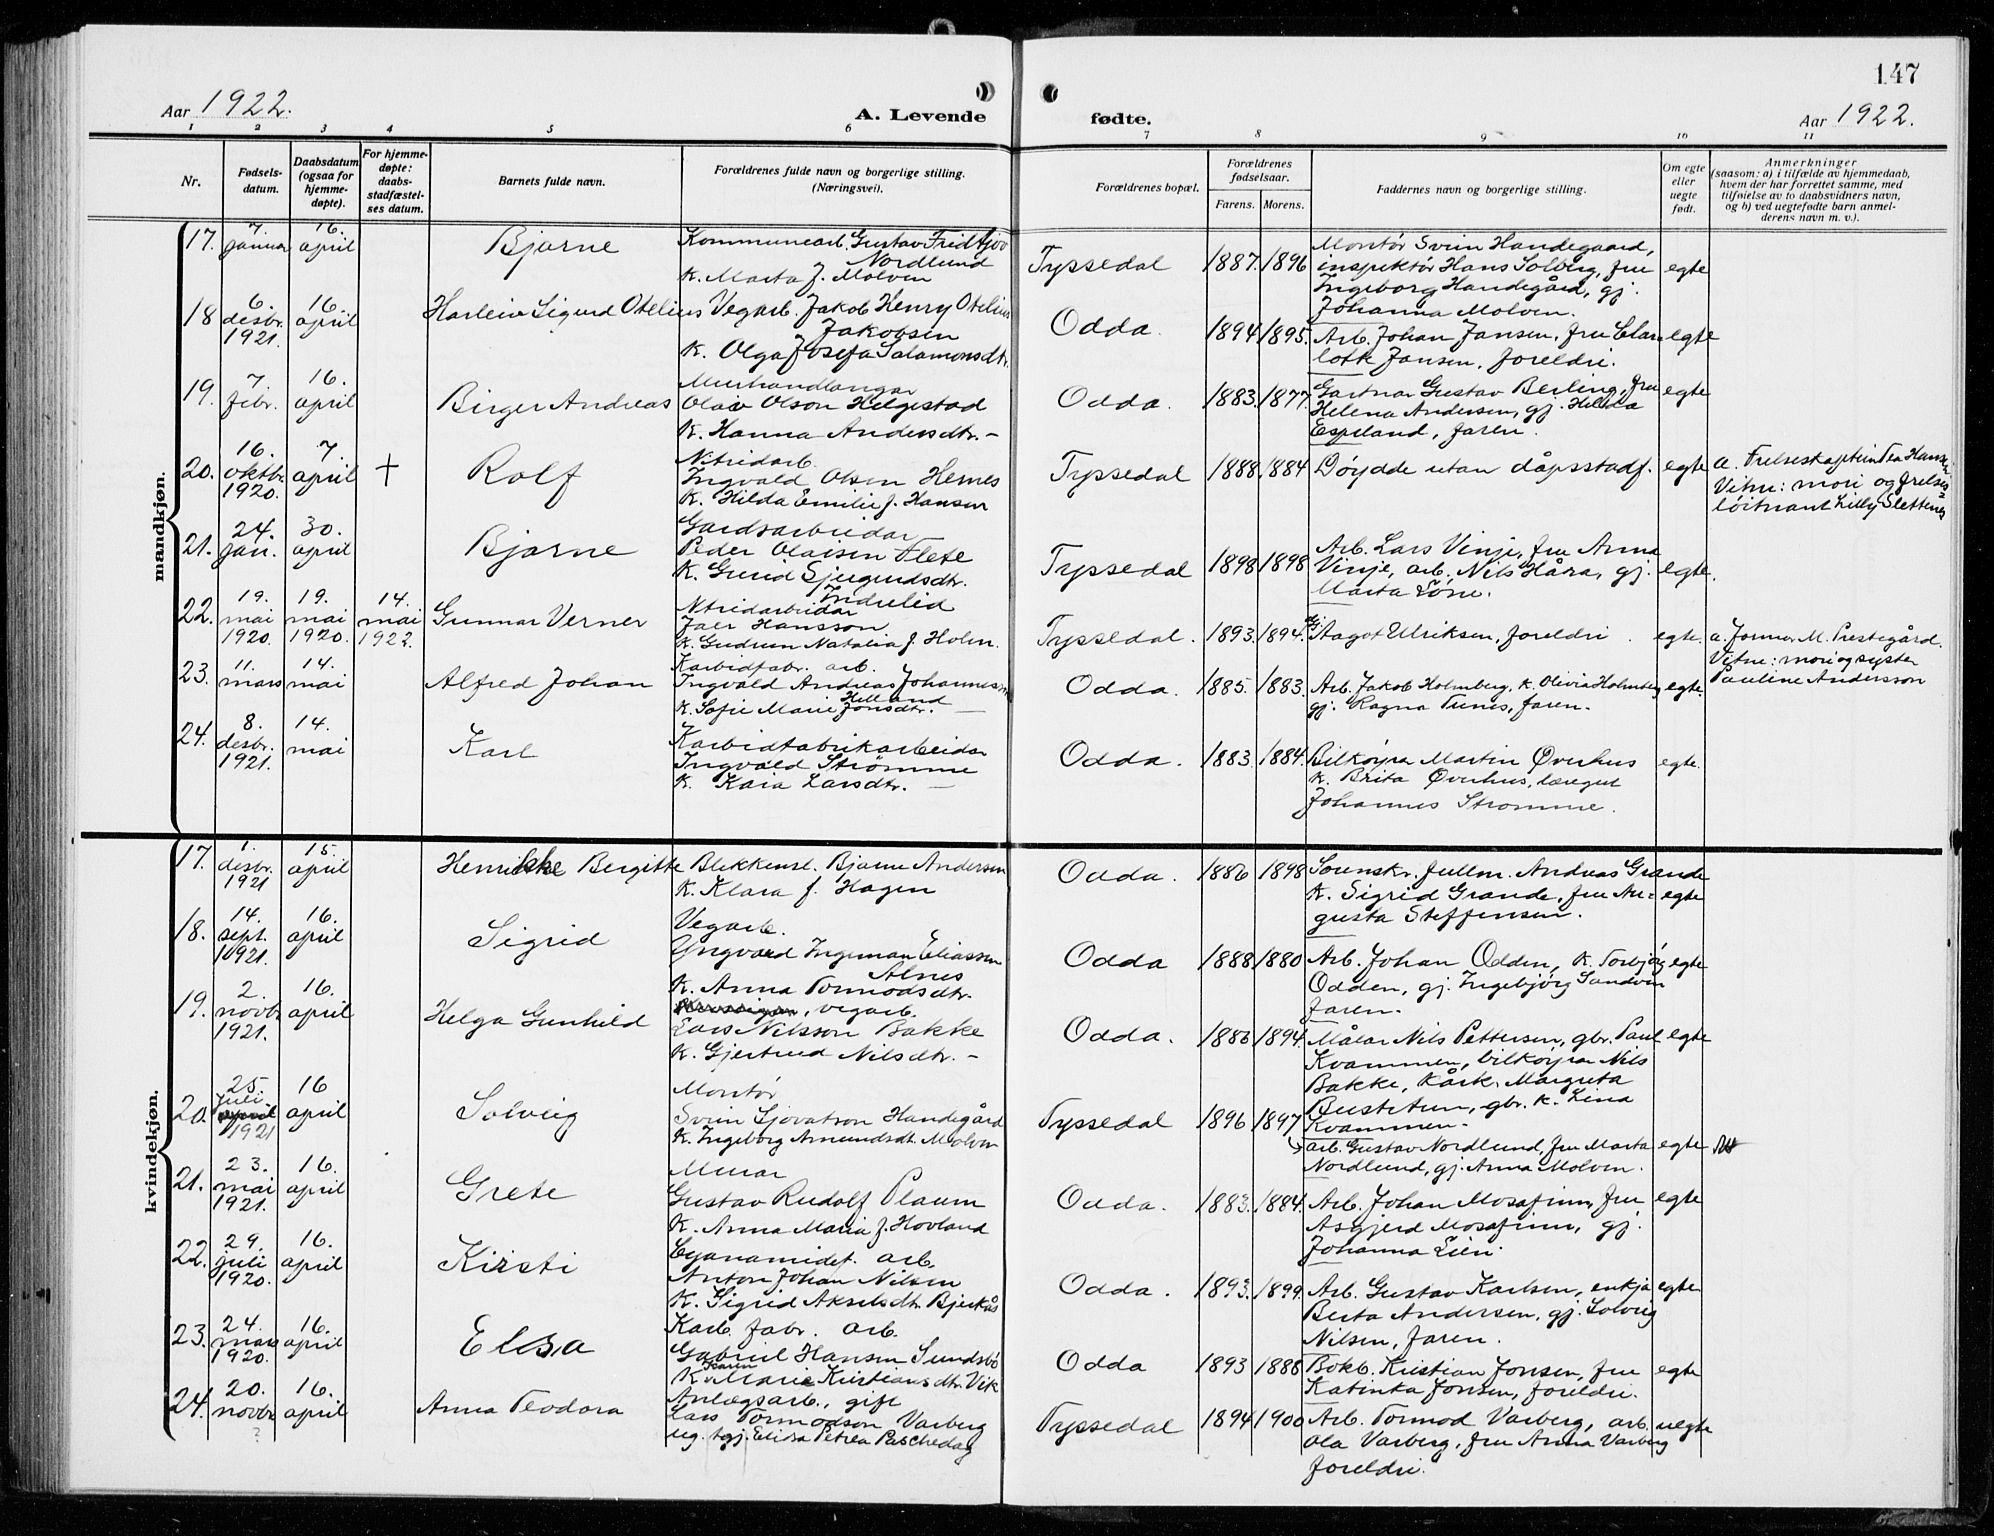 147
Aar 1922.
A. Levende
fødte.
Aar 1922.
1 2 3 4 5 6 7 8 9 10 11
Nr.
Fødsels-
datum.
Daabsdatum
(ogsaa for
hjemme-
døpte).
For hjemme-
døpte:
daabs-
stadfæstel-
ses datum.
Barnets fulde navn.
Forældrenes fulde navn og borgerlige stilling.
(Næringsvei).
Forældrenes bopæl.
Forældrenes
fødselsaar.
Farens. Morens.
Faddernes navn og borgerlige stilling.
Om egte
eller
uegte
født.
Anmerkninger
(saasom: a) i tilfælde av hjemmedaab,
hvem der har forrettet samme, med
tilføielse av to daabsvidners navn,
og b) ved uegtefødte barn anmel-
derens navn m. v.).
mandkjøn.
17. 7. januar 16. april Bjarne
Kommunearb. Gustav Fridtjov
Nordlund
K. Marta f. Molven
Tyssedal 1887. 1896
Montør Svein Handegaard,
inspektør Hans Solberg, fru
Ingeborg Handegård, gj.
Johanna Molven.
egte
18 6. desbr. 1921. 16. april Harleiv Sigurd Otelius
Vegarb. Jakob Henry Otelius
Jakobsen
K. Olga Josefa Salamonsdtr.
Odda. 1894 1895.
Arb. Johan Jansen, fru Char-
lotte Jansen, foreldri.
egte
19. 7. febr. 16. april Birger Andreas
Murhandlangar
Olav Olson Helgestad
K. Hanna Andersdtr. –
Odda. 1883. 1877.
Gartnar Gustav Berling, fru
Helena Andersen, gj. Helga
Espeland, faren.
egte
20. 16. oktbr. 1920. 7. april † Rolf
Nitridarb.
Ingvald Olsen Hernes
K. Hilda Emilie f. Hansen
Tyssedal 1888. 1884
Døydde utan dåpsstadf.
egte
a. Frelseskaptein Tea Hansen
Vitne: mori og frelses=
løitnant Lilly Slettenes
21. 24. jan. 30. april Bjarne
Gardsarbeidar
Peder Olaisen Flete
K. Gurid Sjugurdsdtr.
Indrelid
Tyssedal 1898 1898
Arb. Lars Vinje, fru Anna
Vinje, arb. Nils Håra, gj.
Marta Löne.
egte.
22. 19. mai 1920. 19. mai 1920. 14. mai 1922. Gunnar Verner
Nitridarbeidar
Jaer Hansson
K. Gudrun Natalia f. Holm.
Tyssedal. 1893. 1894.
Gj. Aagot Ulriksen, foreldri.
egte.
a. Jormor M. Prestegård.
Vitne: mori og syster
Pauline Andersson
23. 11. mars 14. mai Alfred Johan
Karbidfabr. arb.
Ingvald Andreas Johannessen
Helland
K. Sofie Marie Jonsdtr. –
Odda. 1885. 1883.
Arb. Jakob Holmberg, K. Olivia Holmberg
gj. Ragna Tunes, faren.
egte.
24. 8. desbr. 1921. 14. mai Karl
Karbidfabrikarbeidar
Ingvald Strømme
K. Kaia Larsdtr. –
Odda. 1883. 1884.
Bilkøyra Martin Øverhus
K. Brita Øverhus, læregut
Johannes Strømme.
egte.
kvindekjøn.
17. 1. desbr. 1921 15. april Henrikke Bergitte
Blekkensl. Bjarne Andersen
K. Klara f. Hagen
Odda. 1886 1898
Sorenskr. fullm. Andreas Grande
K. Sigrid Grande, fru Au-
gusta Steffensen.
egte
18. 14. sept. 1921. 16. april Sigrid
Vegarb.
Yngvard Ingeman Eliassen
Alnes
K. Anna Tormodsdtr.
Odda 1888 1880
Arb. Johan Odden, K. Torbjørg
Odden, gj. Ingebjörg Sandven
faren.
egte
19. 2. novbr. 1921. 16. april Helga Gunhild
, vegarb.
Lars Nilsson Bakke
K. Gjertrud Nilsdtr. –
Odda. 1886 1894.
Målar Nils Pettersen, gbr. Paul
Kvammen, bilköyra Nils
Bakke, kårk. Margreta
Bustetun, gbr. k. Lina
Kvammen.
egte
20. 25. juli april 1921 16 april Solveig
Montör
Svein Sjovatson Handegård
K. Ingeborg Amundsdtr. Molven
Tyssedal 1896 1897
arb. Gustav Nordlund, fru Marta
Nordlund, gj. Anna Molven.
egte
21. 23. mai 1921. 16. april Grete
Murar
Gustav Rudolf Plaum
K. Anna Maria f. Hovland
Odda. 1883. 1884.
Arb. Johan Mosafinn, fru
Asgjerd Mosafinn, gj.
Johanna Lien.
egte
22. 29. juli 1920. 16. april Kirsti
Cyanamidf. arb.
Anton Johan Nilsen
K. Sigrid Akselsdtr. Bjerkås
Odda. 1893. 1899.
Arb. Gustav Karlsen, enkja
Berta Andersen, gj. Solveig
Nilsen, faren.
egte
23. 24. mars 1920. 16. april Elsa
Karb. fabr. arb.
Gabriel Hansen Sundsbö
K. Karen Marie Kristiansdtr. Vik
Odda 1893 1888
Bokb. Kristian Jonsen, fru
Katinka Jonsen, foreldri.
egte
24. 20. novbr. ? 16. april Anna Teodora
Anlegsarb., gift
Lars Tormodson Varberg
ug. tgj. Elida Petrea Paschedag
Tyssedal 1894 1900
Arb. Tormod Varberg, arb.
Ola Varberg, fru Anna Varberg
foreldri.
uegte